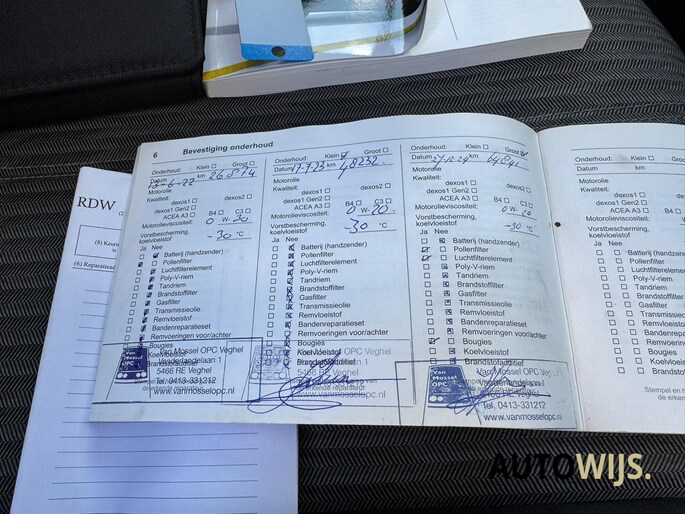 RDW
6 Bevestiging onderhoud
Onderhoud: Klein Groot
Datum 13-6-22 km 26814
Motorolie
Kwaliteit:
dexos1 dexos2
dexos1 Gen2
ACEA A3 B4 C3
Motorolieviscositeit:
0 W- 30
Vorstbescherming,
koelvloeistof
-30 °C
Ja Nee
Batterij (handzender)
Pollenfilter
Luchtfilterelement
Poly-V-riem
Tandriem
Brandstoffilter
Gasfilter
Transmissieolie
Remvloeistof
Bandenreparatieset
Remvoeringen voor/achter
Bougies
Koelvloeistof
Van Mossel OPC Veghel
5466 RE Veghel
Tel. 0413-331212
www.vanmosselopc.nl
Onderhoud: Klein Groot
Datum 17-7-23 km 48232
Motorolie
Kwaliteit:
dexos1 dexos2
dexos1 Gen2
ACEA A3 B4 C3
Motorolieviscositeit:
0 W- 20
Vorstbescherming,
koelvloeistof
-30 °C
Ja Nee
Batterij (handzender)
Pollenfilter
Luchtfilterelement
Poly-V-riem
Tandriem
Brandstoffilter
Gasfilter
Transmissieolie
Remvloeistof
Bandenreparatieset
Remvoeringen voor/achter
Bougies
Koelvloeistof
Van Mossel OPC Veghel
5466 RE Veghel
Tel. 0413-331212
www.vanmosselopc.nl
Onderhoud: Klein Groot
Datum km 64841
Motorolie
Kwaliteit:
dexos1 dexos2
dexos1 Gen2
ACEA A3 B4 C3
Motorolieviscositeit:
0 W- 20
Vorstbescherming,
koelvloeistof
-30 °C
Ja Nee
Batterij (handzender)
Pollenfilter
Luchtfilterelement
Poly-V-riem
Tandriem
Brandstoffilter
Gasfilter
Transmissieolie
Remvloeistof
Bandenreparatieset
Remvoeringen voor/achter
Bougies
Koelvloeistof
Brandstofadditief
Van Mossel OPC
Van Mossel OPC Veghel
Tel. 0413-331212
www.vanmosselopc.nl
Onderhoud: Klein
Datum km
Motorolie
Kwaliteit:
dexos1
dexos1 Gen2
ACEA A3
Motorolieviscositeit:
Vorstbescherming,
koelvloeistof
Ja Nee
Batterij (handzender)
Pollenfilter
Luchtfilterelement
Poly-V-riem
Tandriem
Brandstoffilter
Gasfilter
Transmissieolie
Remvloeistof
Bandenreparatieset
Bougies
Koelvloeistof
Stempel en h
de erken
AUTOWIJS.